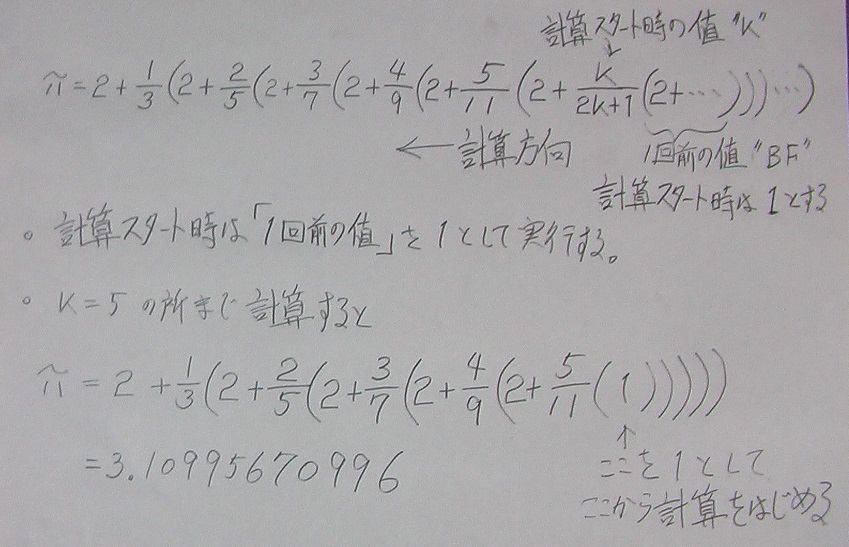 計算スタート時の値"K"
↓
π = 2 + 1/3 (2 + 2/5 (2 + 3/7 (2 + 4/9 (2 + 5/11 (2 + k/2k+1 (2 + … ))) … )
← 計算方向
1回前の値"BF"
計算スタート時は1とする
。計算スタート時は「1回前の値」を1として実行する。
。K=5の所まで計算すると
π = 2 + 1/3 (2 + 2/5 (2 + 3/7 (2 + 4/9 (2 + 5/11 (1)))))
= 3.10995670996
↑
ここを1として
ここから計算をはじめる